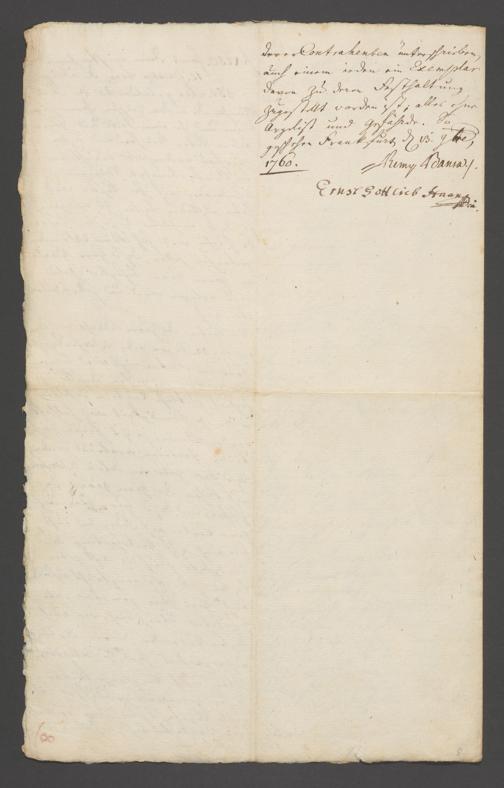 derer Contrahenten unterschrieben,
auch einem jeden ein Exemplar
davon zu deren Festhaltung
zugestellt worden ist, alles ohne
Argelist und Gefährde. So
geschehen Frankfurt, d.
1760.
Ernst Gottlieb
60